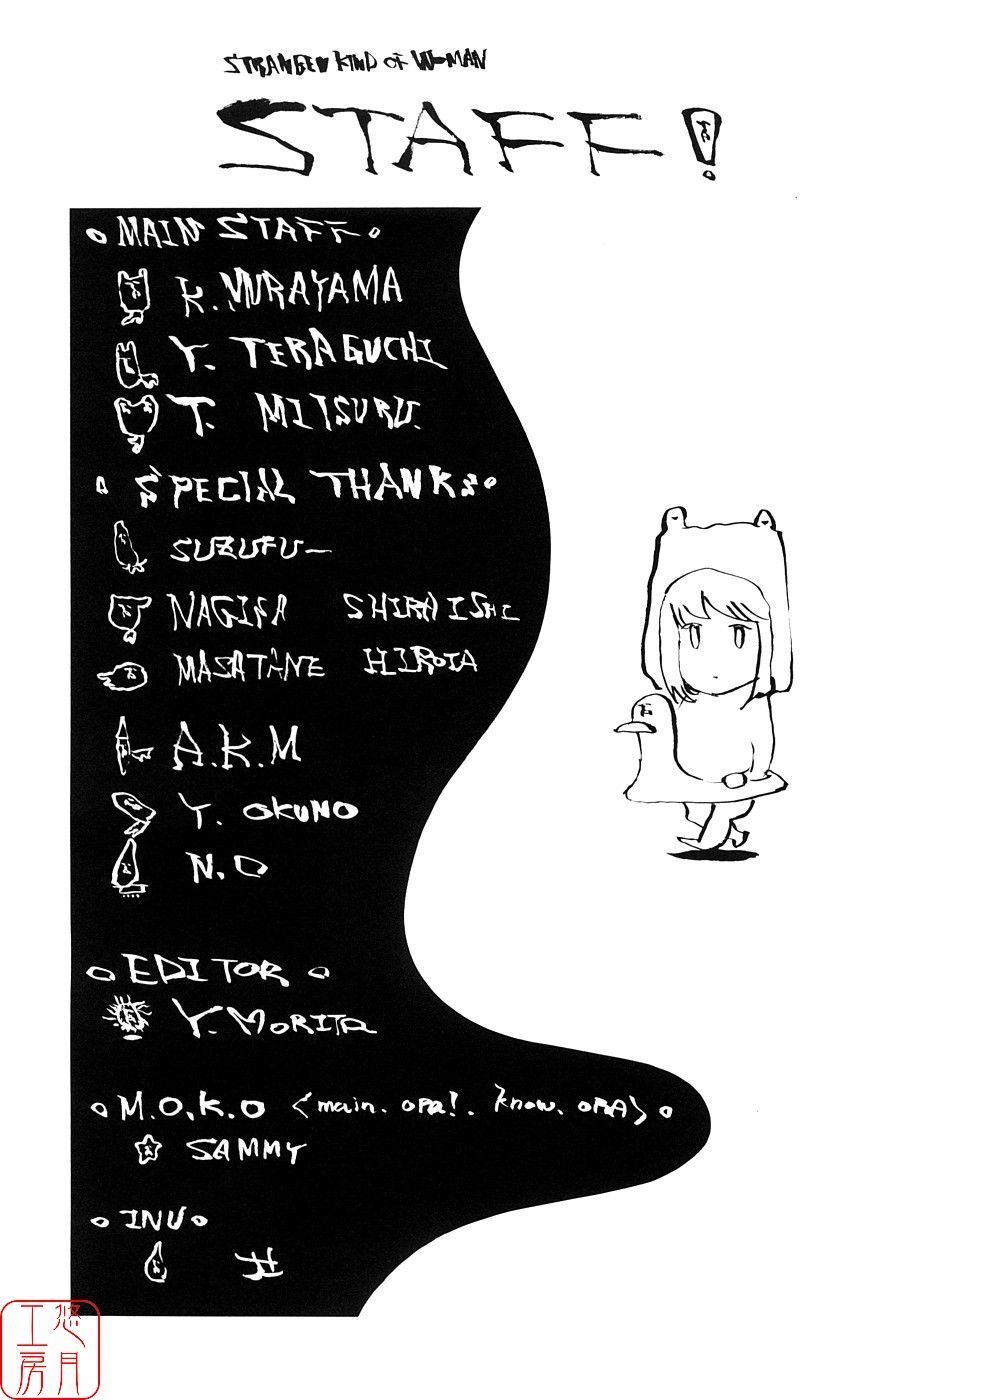 STRANGER KIND OF WOMAN
STAFF!
MAIN STAFF
K. MURAYAMA
Y. TERAGUCHI
T. MITSURU.
SPECIAL THANKS
SUZUFU—
NAGISA SHIRAISHI
MASATANE HIROTA
A.K.M
Y. OKUNO
N.D
EDITOR
Y. MORITA
M.O.K.O <main. ORA!. know. ORA>
SAMMY
INU
悠月工房